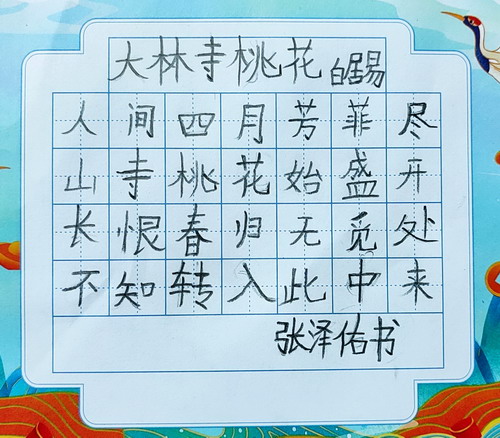 大林寺桃花 白居易
人间四月芳菲尽
山寺桃花始盛开
长恨春归无觅处
不知转入此中来
张泽佑书